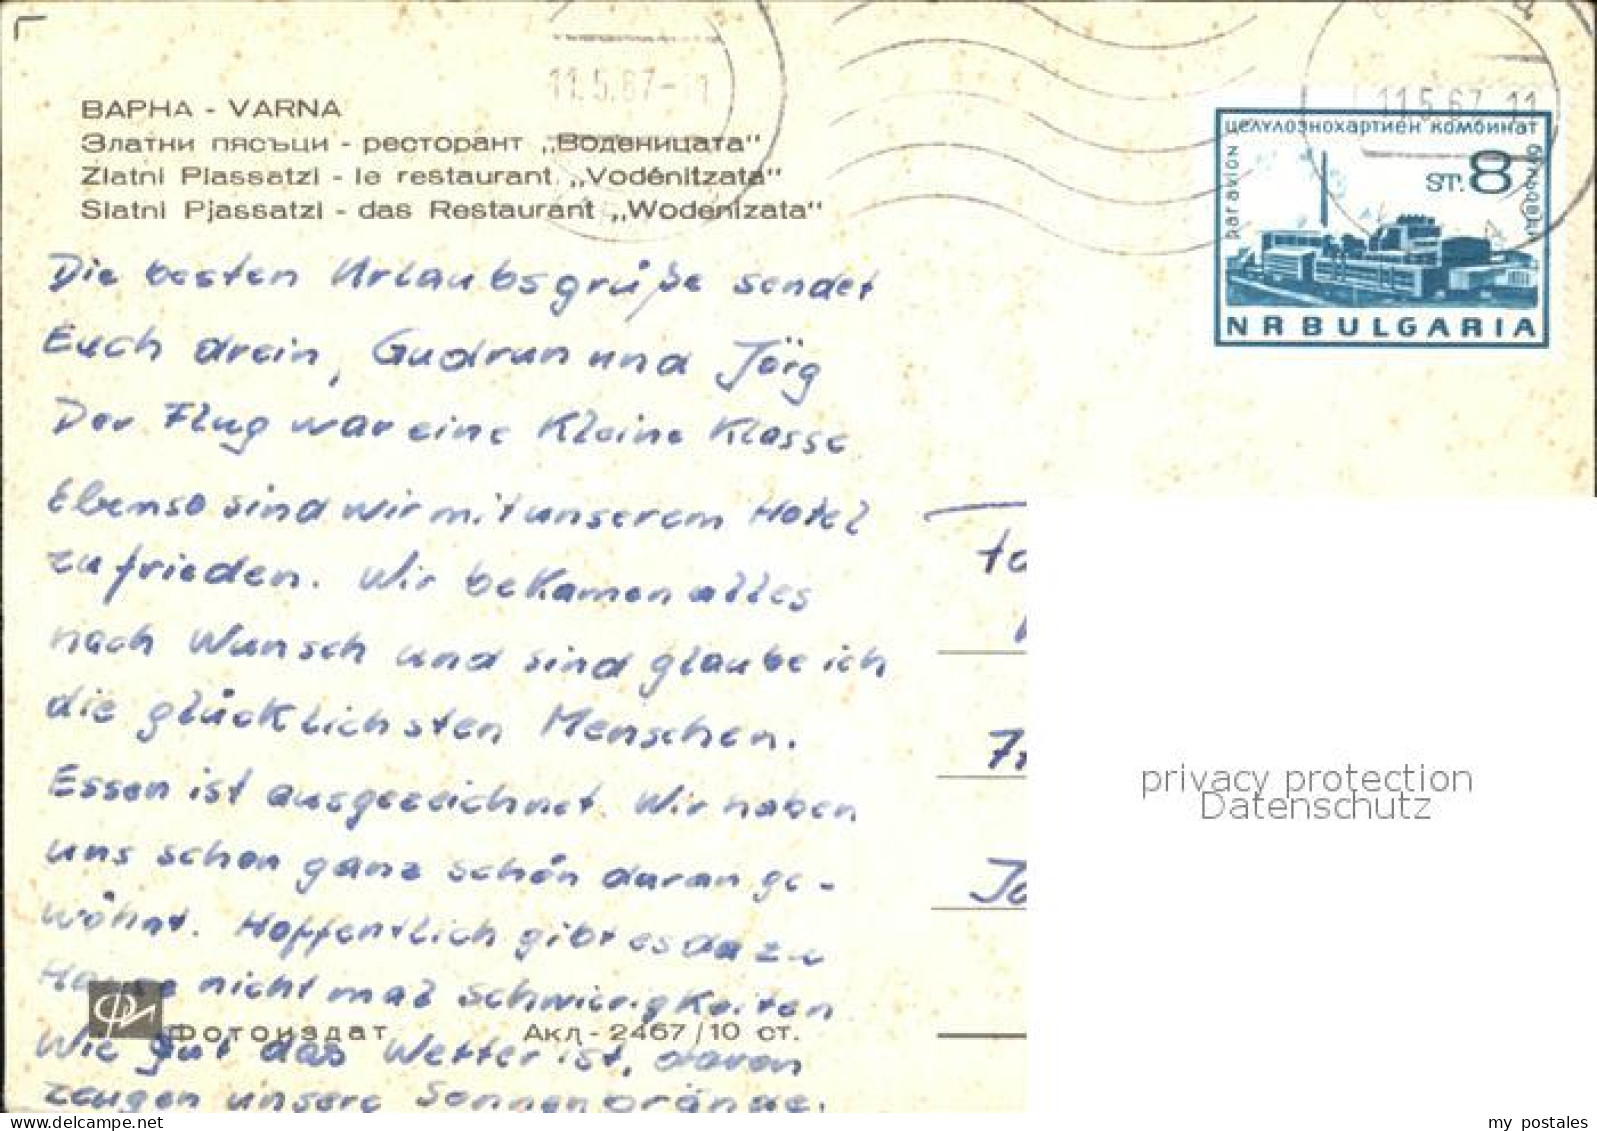 ВАРНА - VARNA
Златни пясъци - ресторант „Воденицата"
Zlatni Piassatzi - le restaurant „Vodénitzata"
Slatni Pjassatzi - das Restaurant „Wodenizata"
11.5.67-11
11.5.67 11
целулознохартиен комбинат
paravion
ST. 8
NRBULGARIA
Die besten Urlaubsgrüße sendet
Euch drein, Gudrun und Jörg
Der Flug war eine Kleine Klasse
Ebenso sind wir mit unserem Hotel
zufrieden. Wir bekamen alles
nach Wunsch und sind glaube ich
die glücklichsten Menschen.
Essen ist ausgezeichnet. Wir haben
uns schon ganz schön daran ge-
wöhnt. Hoffentlich gibt es da zu
Hause nicht mal Schwierigkeiten
Wie gut das Wetter ist, davon
zeugen unsere Sonnenbrände.
Фотоиздат Акл - 2467/10 ст.
privacy protection
Datenschutz
my postales